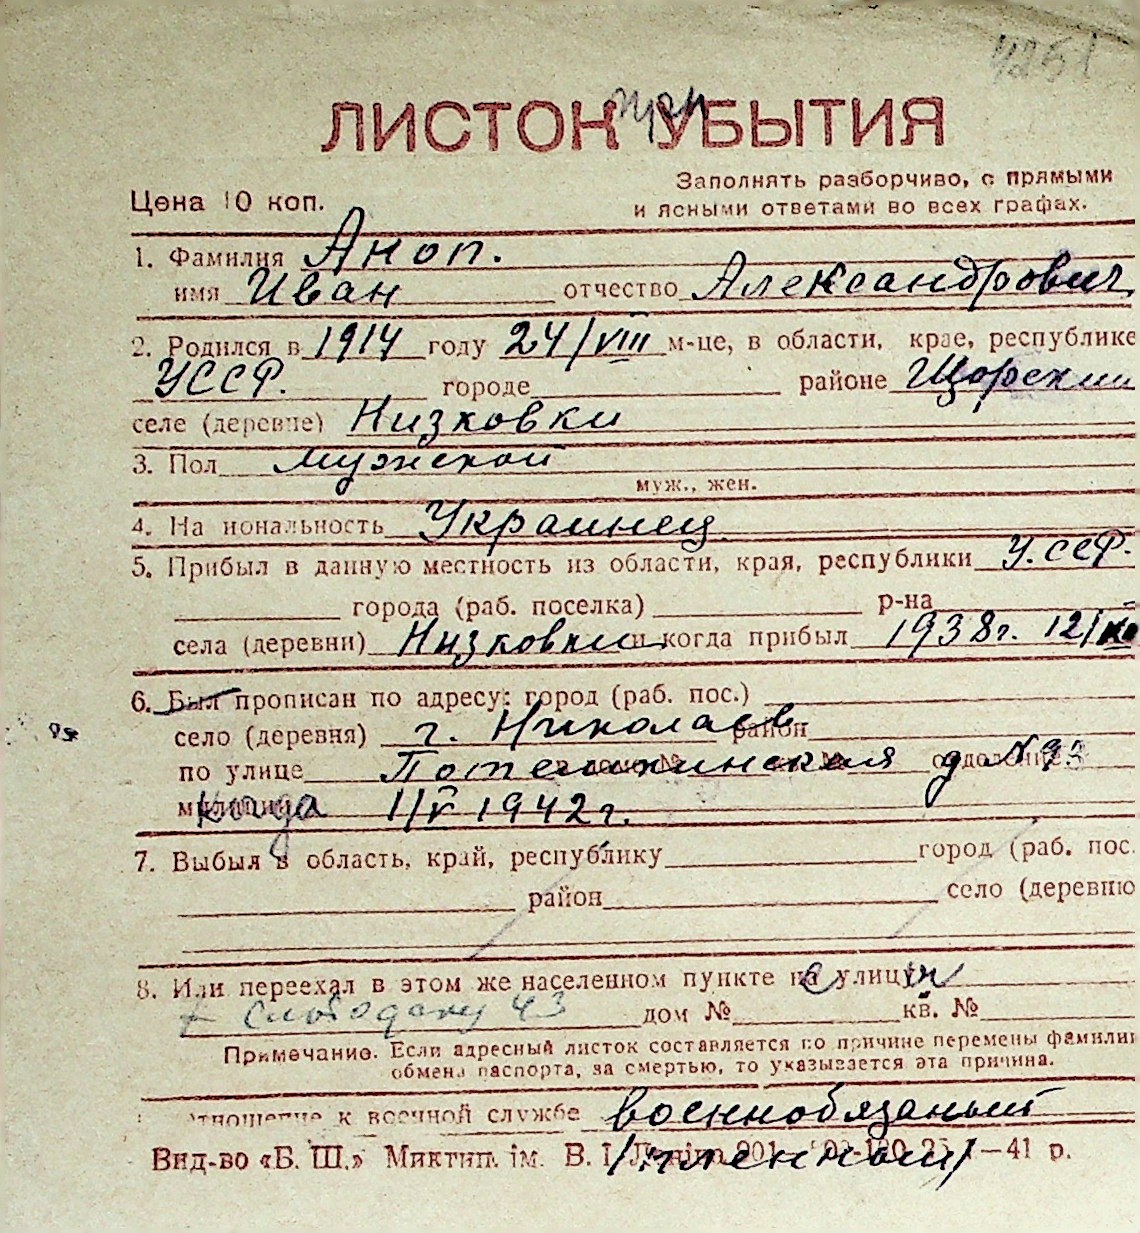 4251
ЛИСТОК УБЫТИЯ
Цена 10 коп.
Заполнять разборчиво, с прямыми
и ясными ответами во всех графах.
1. Фамилия Аноп.
имя Иван отчество Александрович
2. Родился в 1914 году 24/VIII м-це, в области, крае, республике
УССР. городе районе Щорский
селе (деревне) Низковки
3. Пол мужской
муж., жен.
4. Национальность Украинец
5. Прибыл в данную местность из области, края, республики У.ССР.
города (раб. поселка) р-на
села (деревни) Низковки и когда прибыл 1938г. 12/
6. Был прописан по адресу: город (раб. пос.)
село (деревня) г. Николаев район
по улице Потемкинская д №93
Когда 1/V 1942г.
7. Выбыл в область, край, республику город (раб. пос.
район село (деревню
8. Или переехал в этом же населенном пункте на улицу
Слободску 43 дом № кв. №
Примечание. Если адресный листок составляется по причине перемены фамилии
обмена паспорта, за смертью, то указывается эта причина.
отношение к военной службе военнобязаный
Вид-во «Б. Ш.» Миктип. ім. В. І. Леніна /пленный/ —41 р.